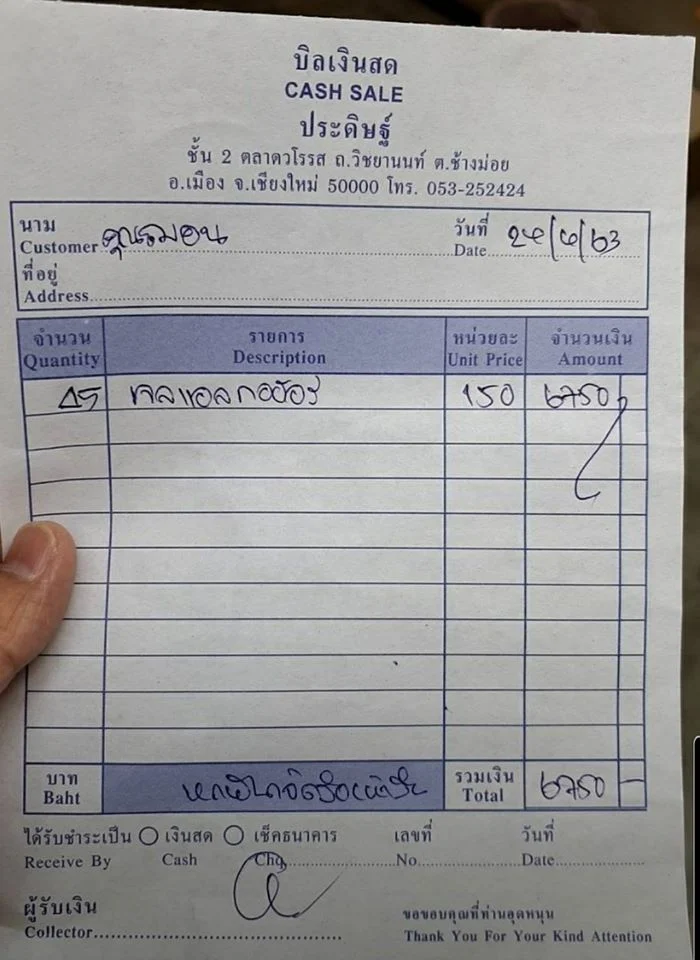 บิลเงินสด
CASH SALE
ประดิษฐ์
ชั้น 2 ตลาดวโรรส ถ.วิชยานนท์ ต.ช้างม่อย
อ.เมือง จ.เชียงใหม่ 50000 โทร. 053-252424
นาม
Customer คุณ
วันที่
Date /63
ที่อยู่
Address
จำนวน รายการ หน่วยละ จำนวนเงิน
Quantity Description Unit Price Amount
45 เจลแอลกอฮอร์ 150 6750
บาท หกพันเจ็ดร้อยห้าสิบ รวมเงิน 6750 -
Baht Total
ได้รับชำระเป็น เงินสด เช็คธนาคาร เลขที่ วันที่
Receive By Cash Chq. No. Date
ผู้รับเงิน ขอขอบคุณที่ท่านอุดหนุน
Collector Thank You For Your Kind Attention